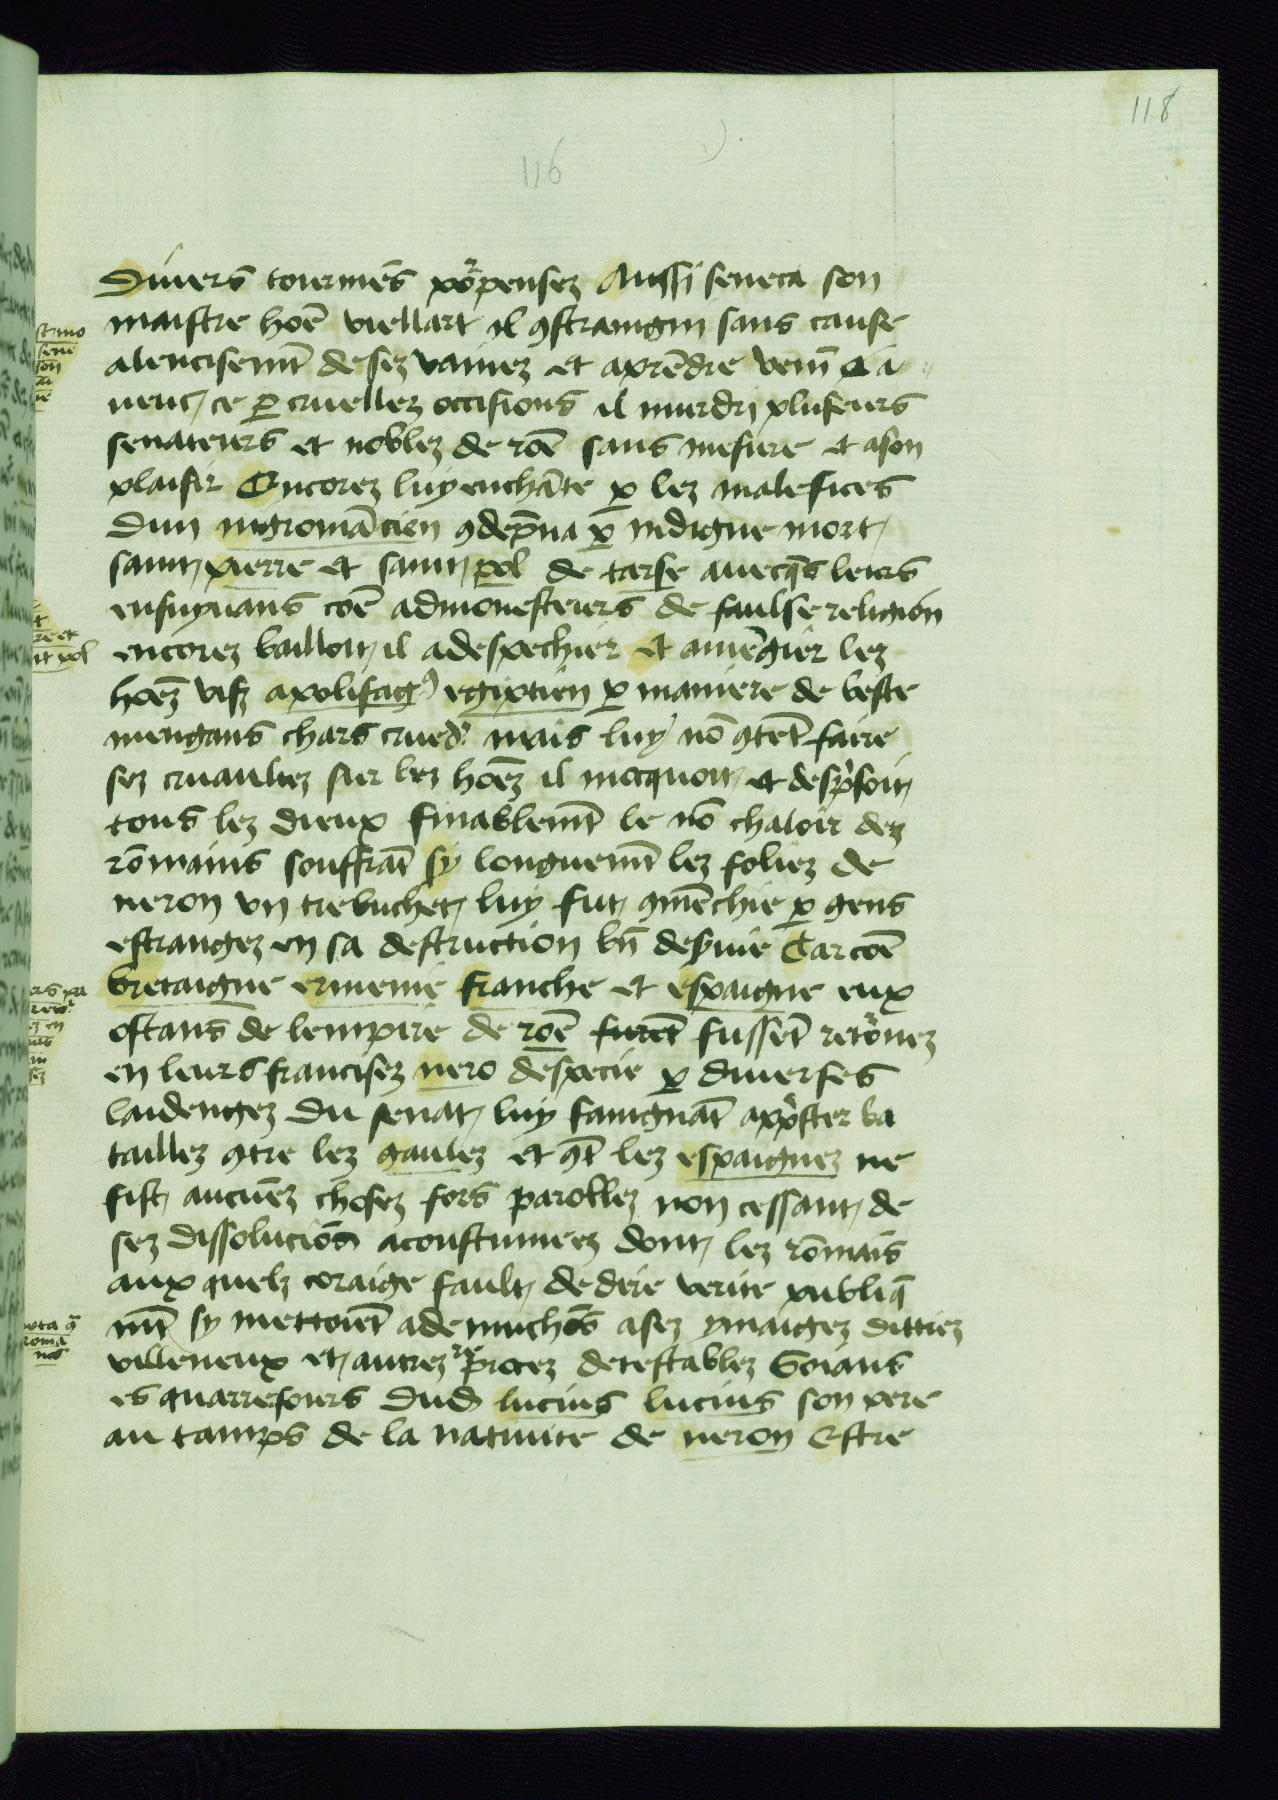 118
116
Divers tourmēs po͛pensez Aussi seneca son
maistre hoē viellart il ꝯstraingni sans cause
alencisemt̄ de sez vainez et aprēdre venī Ca
neuc ce ꝑ cruellez occisions il murdri pluseurs
senateurs et noblez de roē sans mesure et ason
plaisir Encorez luy enchāte ꝑ lez malefices
dun nigromācien ꝯdēpna ꝑ indigne mort
saint pierre et saint pol de tarse avecqs̄ leurs
ensuyvans coē admonesteurs de faulse religion
encorez bailloit il adespechier et amēgier lez
hoēz vifz apolifagꝰ egiptien ꝑ maniere de beste
mengans chars crued͛ mais luy nō ꝯtēt faire
sez cruaultez sur lez hoēz il mocquoit et desp̄soit
tous lez dieux finablemt̄ le nō chaloir dez
rōmains souffrāt sy longuemt̄ lez foliez de
neron vn trebuchet luy fut ꝯmēchie ꝑ gens
estrangez en sa destruction bn̄ desynie Car coē
bretaigne ermenie franche et espaigne eux
ostans de lempire de roē furēt fussēt reto͛nez
en leurs francisez nero despecie ꝑ diverses
laidengez du senat luy faingnāt app͛ster ba
taillez ꝯtre lez gaulez et ꝯt̄ lez espaignez ne
fist aucuēz chosez fors parollez non cessant de
sez dissoluciōn acoustumeez dont lez rōmais
aux quelz coraige fault de dire verite publiq̄
mt̄ sy mettoiēt ademuchōs asez ymaigez dittiez
villeneux et autrez rep͛ocez detestablez Goians
es quarrefours dud lucius lucius son pere
au tamps de la nativite de neron Estre